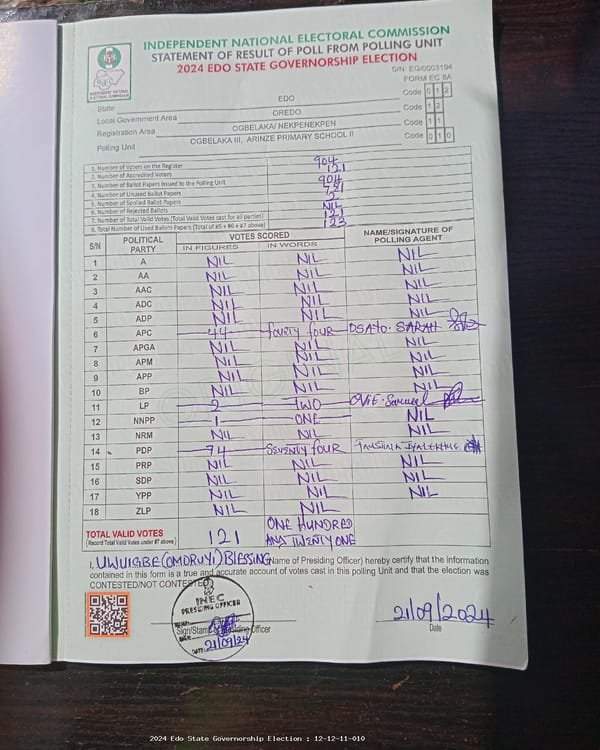 INDEPENDENT NATIONAL ELECTORAL COMMISSION
STATEMENT OF RESULT OF POLL FROM POLLING UNIT
2024 EDO STATE GOVERNORSHIP ELECTION
S/N: EG/0003194
FORM EC 8A
INDEPENDENT NATIONAL ELECTORAL COMMISSION
State EDO Code 0 1 2
Local Government Area OREDO Code 1 2
Registration Area OGBELAKA/ NEKPENEKPEN Code 1 1
Polling Unit OGBELAKA III, ARINZE PRIMARY SCHOOL II Code 0 1 0
1. Number of Voters on the Register 904
2. Number of Accredited Voters 121
3. Number of Ballot Papers Issued to the Polling Unit 904
4. Number of Unused Ballot Papers
5. Number of Spoiled Ballot Papers 2
6. Number of Rejected Ballots NIL
7. Number of Total Valid Votes (Total Valid Votes cast for all parties) 121
8. Total Number of Used Ballots Papers (Total of #5 + #6 + #7 above) 123
S/N POLITICAL PARTY VOTES SCORED NAME/SIGNATURE OF POLLING AGENT
IN FIGURES IN WORDS
1 A NIL NIL NIL
2 AA NIL NIL NIL
3 AAC NIL NIL NIL
4 ADC NIL NIL NIL
5 ADP NIL NIL NIL
6 APC 44 fourty four OSATO. SARAH
7 APGA NIL NIL NIL
8 APM NIL NIL NIL
9 APP NIL NIL NIL
10 BP NIL NIL NIL
11 LP 2 TWO OVIE. Samuel
12 NNPP 1 ONE NIL
13 NRM NIL NIL NIL
14 PDP 74 SEVENTY FOUR
15 PRP NIL NIL NIL
16 SDP NIL NIL NIL
17 YPP NIL NIL NIL
18 ZLP NIL NIL
TOTAL VALID VOTES 121 ONE HUNDRED
(Record Total Valid Votes under #7 above) AND TWENTY ONE
I, UWUIGBE (OMORUYI) BLESSING (Name of Presiding Officer) hereby certify that the information
contained in this form is a true and accurate account of votes cast in this polling Unit and that the election was
CONTESTED/NOT CONTESTED
INEC
PRESIDING OFFICER
Sign/Stamp of Presiding Officer
DATE: 21/09/24
21/09/2024
Date
2024 Edo State Governorship Election : 12-12-11-010